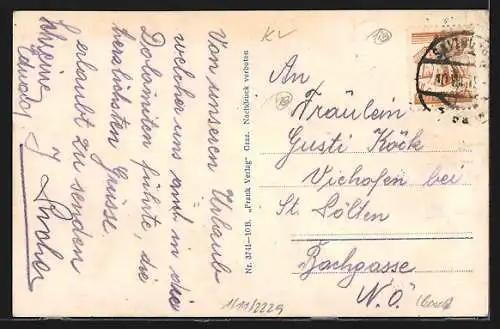 Von unseren Urlaub
welcher uns auch in die
Dolomiten führte, die
herzlichsten Grüsse
erlaubt zu senden
Nr. 3741—10B. „Frank Verlag“ Graz. Nachdruck verboten
An
Fräulein
Gusti Köck
Viehofen bei
St. Pölten
Bachgasse
N.Ö.
1/11/2229